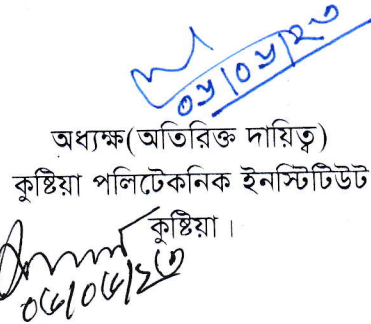 ০৬/০৬/২৩
অধ্যক্ষ(অতিরিক্ত দায়িত্ব)
কুষ্টিয়া পলিটেকনিক ইনস্টিটিউট
কুষ্টিয়া।
০৬/০৬/২৩